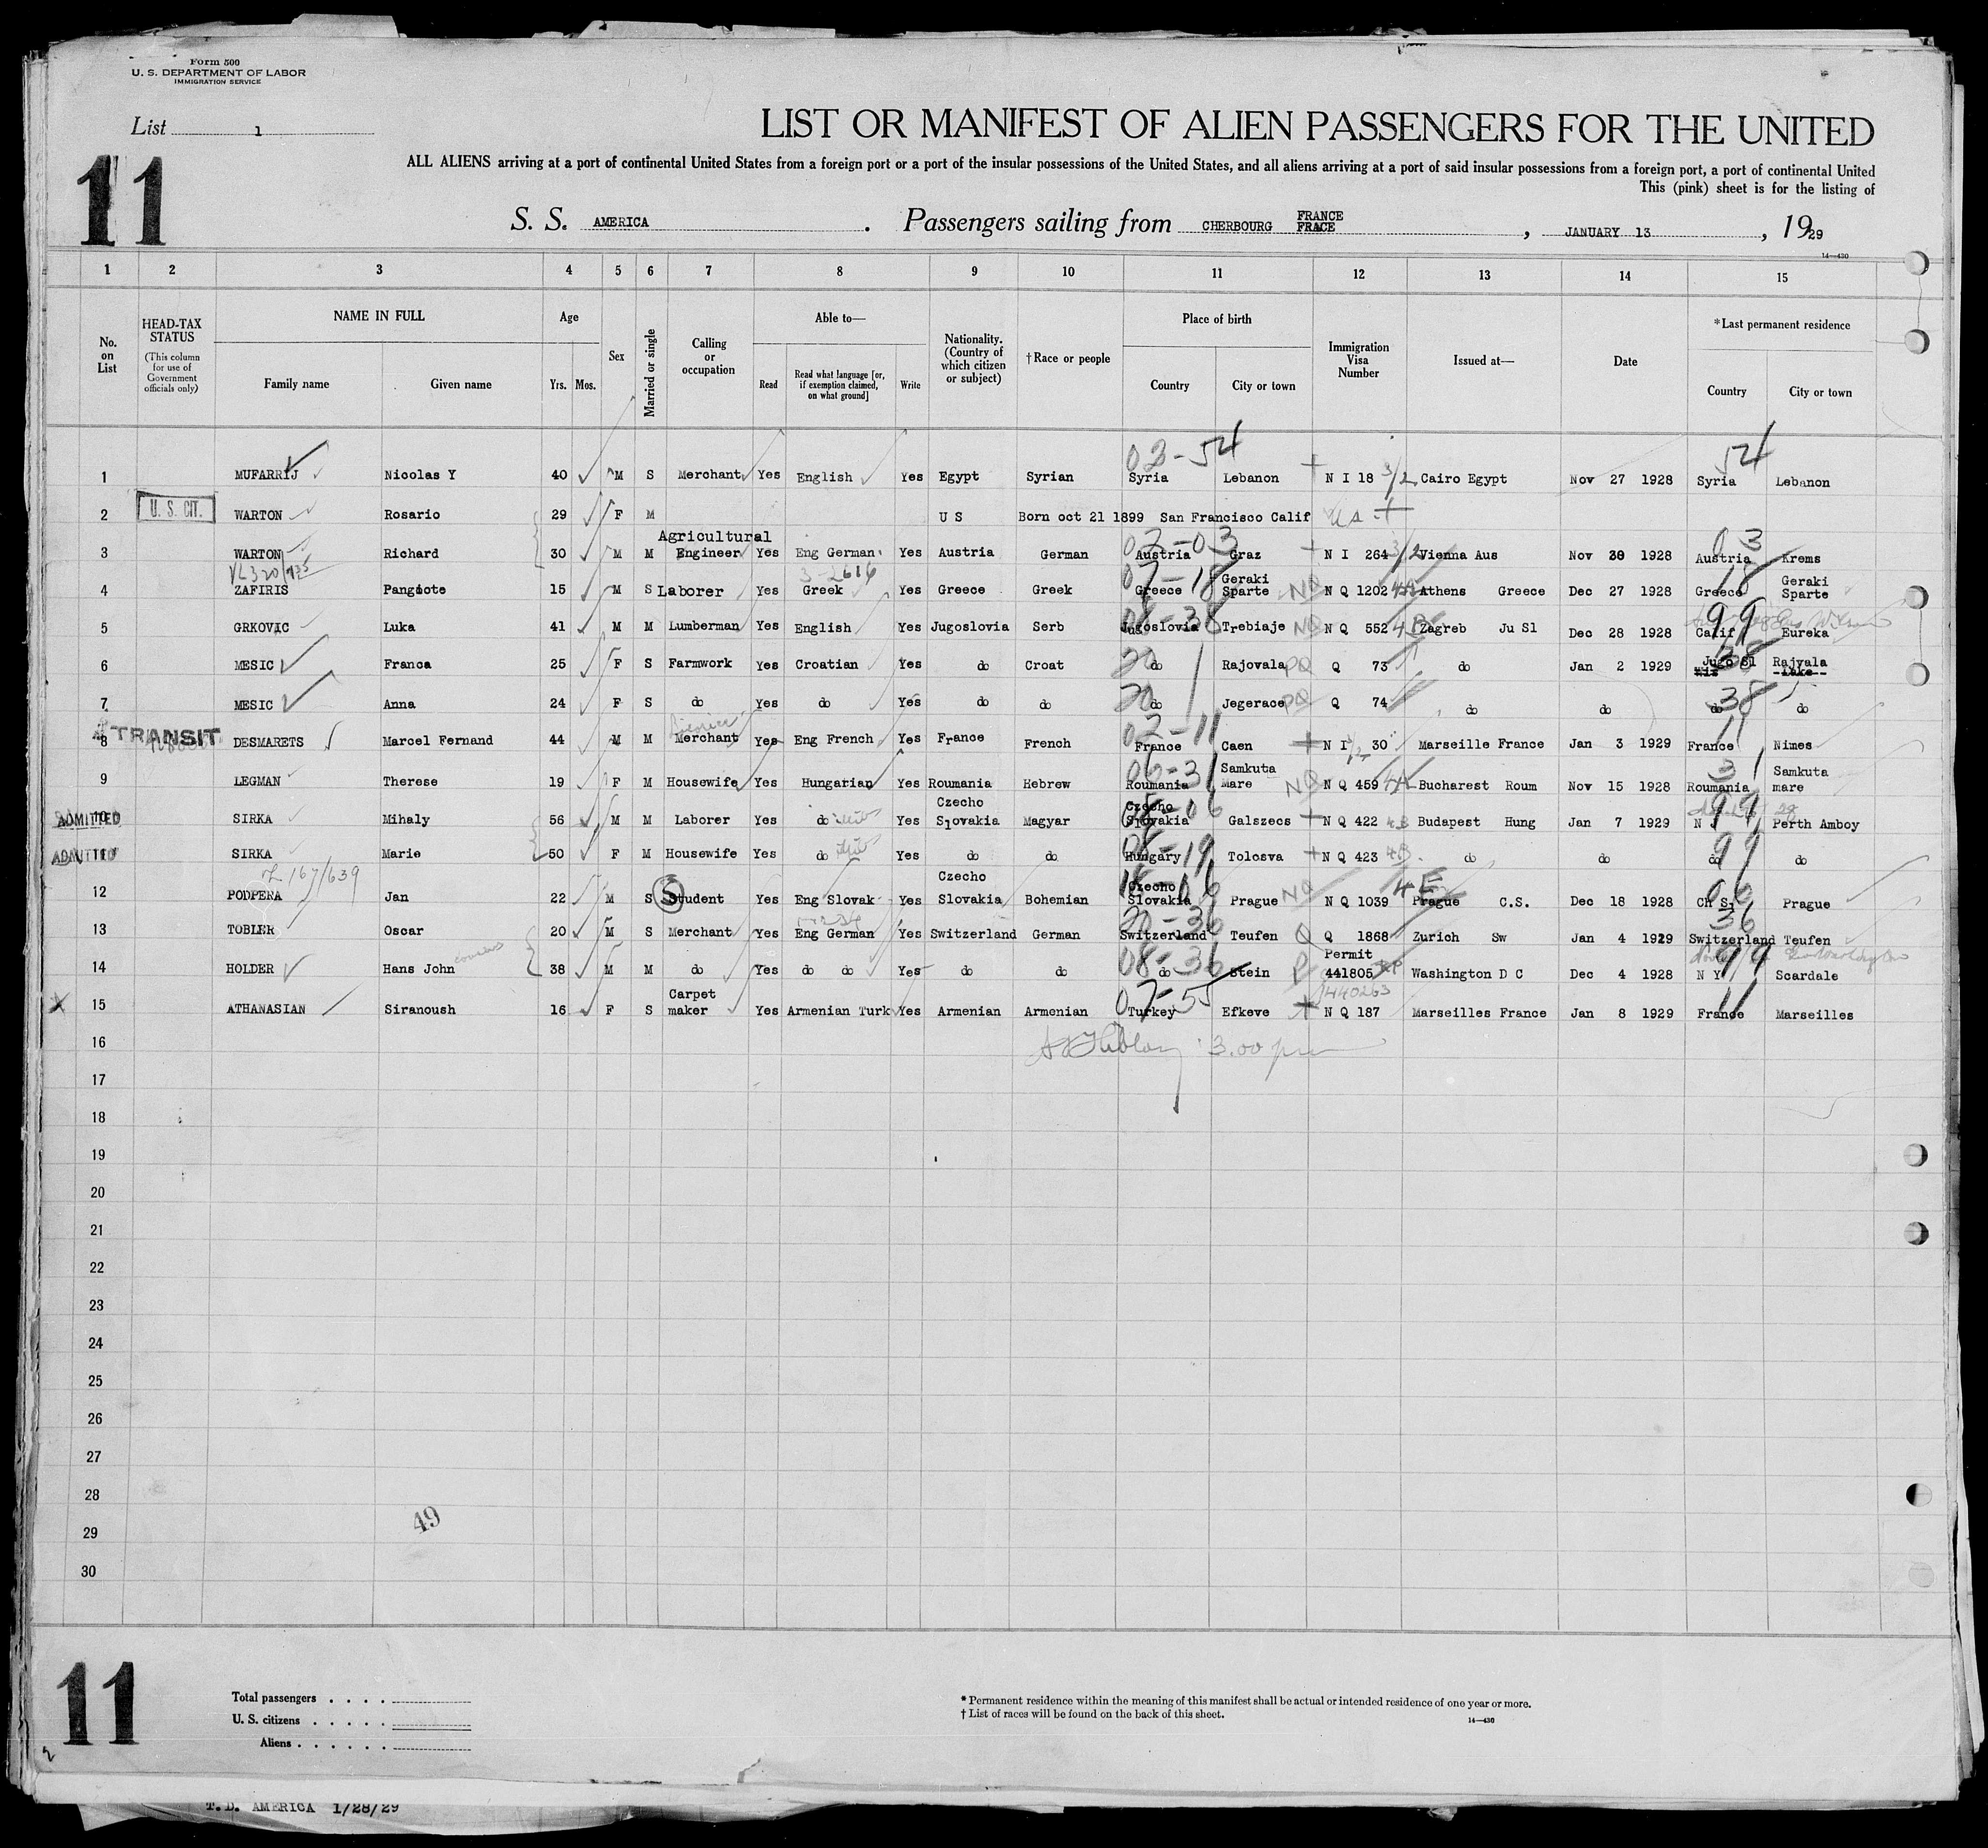 Form 500
U. S. DEPARTMENT OF LABOR
IMMIGRATION SERVICE
List 1
LIST OR MANIFEST OF ALIEN PASSENGERS FOR THE UNITED
11
ALL ALIENS arriving at a port of continental United States from a foreign port or a port of the insular possessions of the United States, and all aliens arriving at a port of said insular possessions from a foreign port, a port of continental United
This (pink) sheet is for the listing of
FRANCE
S. S. AMERICA . Passengers sailing from CHERBOURG FRACE , JANUARY 13 , 1929
14—430
1 2 3 4 5 6 7 8 9 10 11 12 13 14 15
No. on List
HEAD-TAX STATUS
(This column for use of Government officials only)
NAME IN FULL
Family name Given name
Age
Yrs. Mos.
Sex
Married or single
Calling or occupation
Able to—
Read
Read what language [or, if exemption claimed, on what ground]
Write
Nationality. (Country of which citizen or subject)
†Race or people
Place of birth
Country City or town
Immigration Visa Number
Issued at—
Date
*Last permanent residence
Country City or town
02-54 54
1 MUFARRIJ Nicolas Y 40 M S Merchant Yes English Yes Egypt Syrian Syria Lebanon N I 18 3/2 Cairo Egypt Nov 27 1928 Syria Lebanon
2 U. S. CIT. WARTON Rosario 29 F M U S Born oct 21 1899 San Francisco Calif
Agricultural 02-03 03
3 WARTON Richard 30 M M Engineer Yes Eng German Yes Austria German Austria Graz N I 264 Vienna Aus Nov 30 1928 Austria Krems
07-18 Geraki NQ 18 Geraki
4 ZAFIRIS Pangiote 15 M S Laborer Yes Greek Yes Greece Greek Greece Sparte N Q 1202 Athens Greece Dec 27 1928 Greece Sparte
08-38 NQ 99
5 GRKOVIC Luka 41 M M Lumberman Yes English Yes Jugoslovia Serb Jugoslovia Trebiaje N Q 552 Zagreb Ju Sl Dec 28 1928 Calif Eureka
20 PQ 38 Jugo Sl Rajvala
6 MESIC Franca 25 F S Farmwork Yes Croatian Yes do Croat do Rajovala Q 73 do Jan 2 1929 Wis Lake
20 PQ 38
7 MESIC Anna 24 F S do Yes do Yes do do do Jegerace Q 74 do do do do
TRANSIT 02-11 11
8 DESMARETS Marcel Fernand 44 M M Merchant Yes Eng French Yes France French France Caen N I 30 Marseille France Jan 3 1929 France Nimes
06-31 Samkuta NQ 31 Samkuta
9 LEGMAN Therese 19 F M Housewife Yes Hungarian Yes Roumania Hebrew Roumania Mare N Q 459 Bucharest Roum Nov 15 1928 Roumania mare
Czecho Czecho 99
ADMITTED 10 SIRKA Mihaly 56 M M Laborer Yes do Yes Slovakia Magyar Slovakia Galszecs N Q 422 Budapest Hung Jan 7 1929 N J Perth Amboy
99
ADMITTED 11 SIRKA Marie 50 F M Housewife Yes do Yes do do Hungary Tolosva N Q 423 do do do do
167/639 Czecho Czecho NQ 4E 06
12 PODPERA Jan 22 M S Student Yes Eng Slovak Yes Slovakia Bohemian Slovakia Prague N Q 1039 Prague C.S. Dec 18 1928 Ch Sl Prague
20-36 Q 36
13 TOBLER Oscar 20 M S Merchant Yes Eng German Yes Switzerland German Switzerland Teufen Q 1868 Zurich Sw Jan 4 1929 Switzerland Teufen
cousins 08-36 Permit 99
14 HOLDER Hans John 38 M M do Yes do do Yes do do do Stein 441805 Washington D C Dec 4 1928 N Y Scardale
Carpet 07-55 440263 11
X 15 ATHANASIAN Siranoush 16 F S maker Yes Armenian Turk Yes Armenian Armenian Turkey Efkeve N Q 187 Marseilles France Jan 8 1929 France Marseilles
16 3.00 pm
17
18
19
20
21
22
23
24
25
26
27
28
49
29
30
11
Total passengers . . . .
U. S. citizens . . . . .
Aliens . . . . . .
* Permanent residence within the meaning of this manifest shall be actual or intended residence of one year or more.
† List of races will be found on the back of this sheet.
14—430
T.D. AMERICA 1/28/29